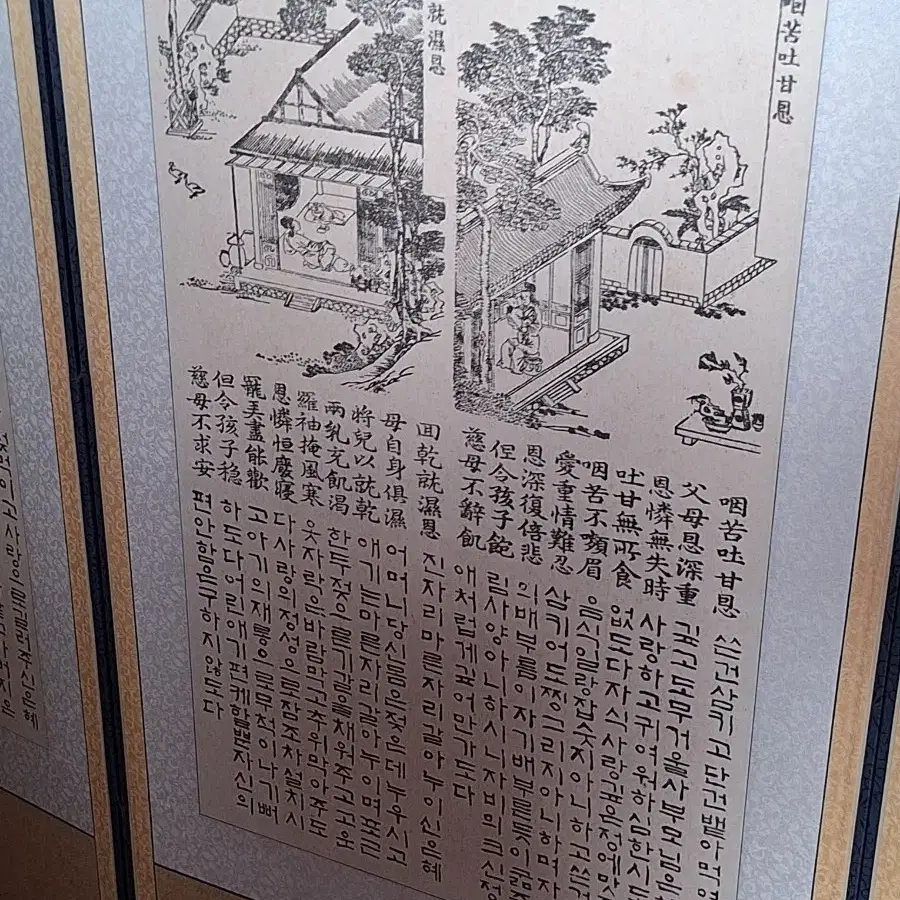 咽苦吐甘恩
就濕恩
咽苦吐甘恩 쓴건삼키고단건뱉아먹여
父母恩深重 깊고도무거울사부모님은
恩憐無失時 사랑하고귀여워하심한시도
吐甘無所食 없도다자식사랑깊은정에맛
咽苦不嚬眉 음식일랑잡숫지아니하고쓰거
愛重情難忍 삼키어도찡그리지아니하며자
恩深復倍悲 의배부름이자기배부른듯이굶주
但令孩子飽 림사양아니하시니자비의크신정
慈母不辭飢 애처럽게깊어만가도다
回乾就濕恩 진자리마른자리갈아누이신은혜
母自身俱濕 어머니당신들은젖은데누우시고
將兒以就乾 애기는마른자리갈아누이며포든
兩乳充飢渴 한두젖으로기갈을채워주고고운
羅袖掩風寒 옷자락은바람막고추위막아주도
恩憐恒廢寢 다사랑의정성으로잠조차설치시
寵美盡能歡 고아기의재롱으로무척이나기뻐
但令孩子穩 하도다어린애기편케할뿐자신의
慈母不求安 편안함은구하지않도다
젖먹이고사랑으로길러주신은혜